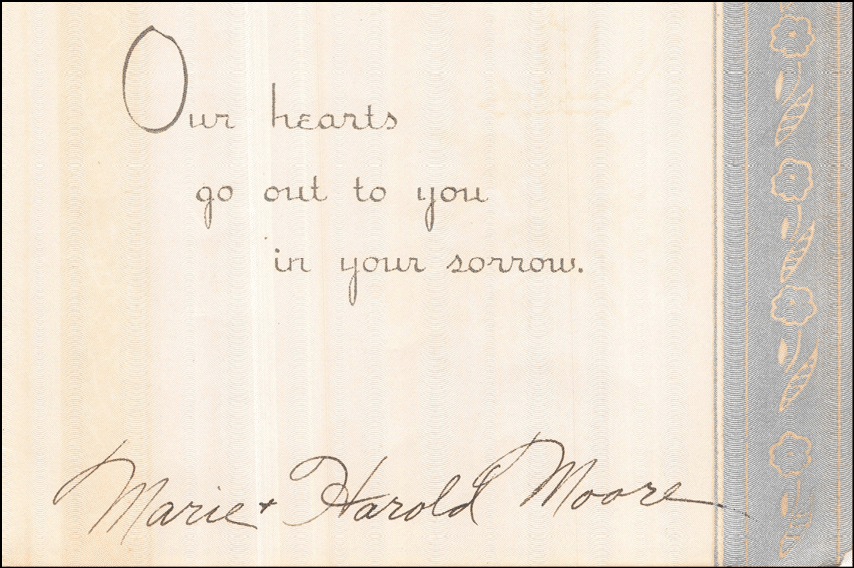 Our hearts
go out to you
in your sorrow.
Marie + Harold Moore